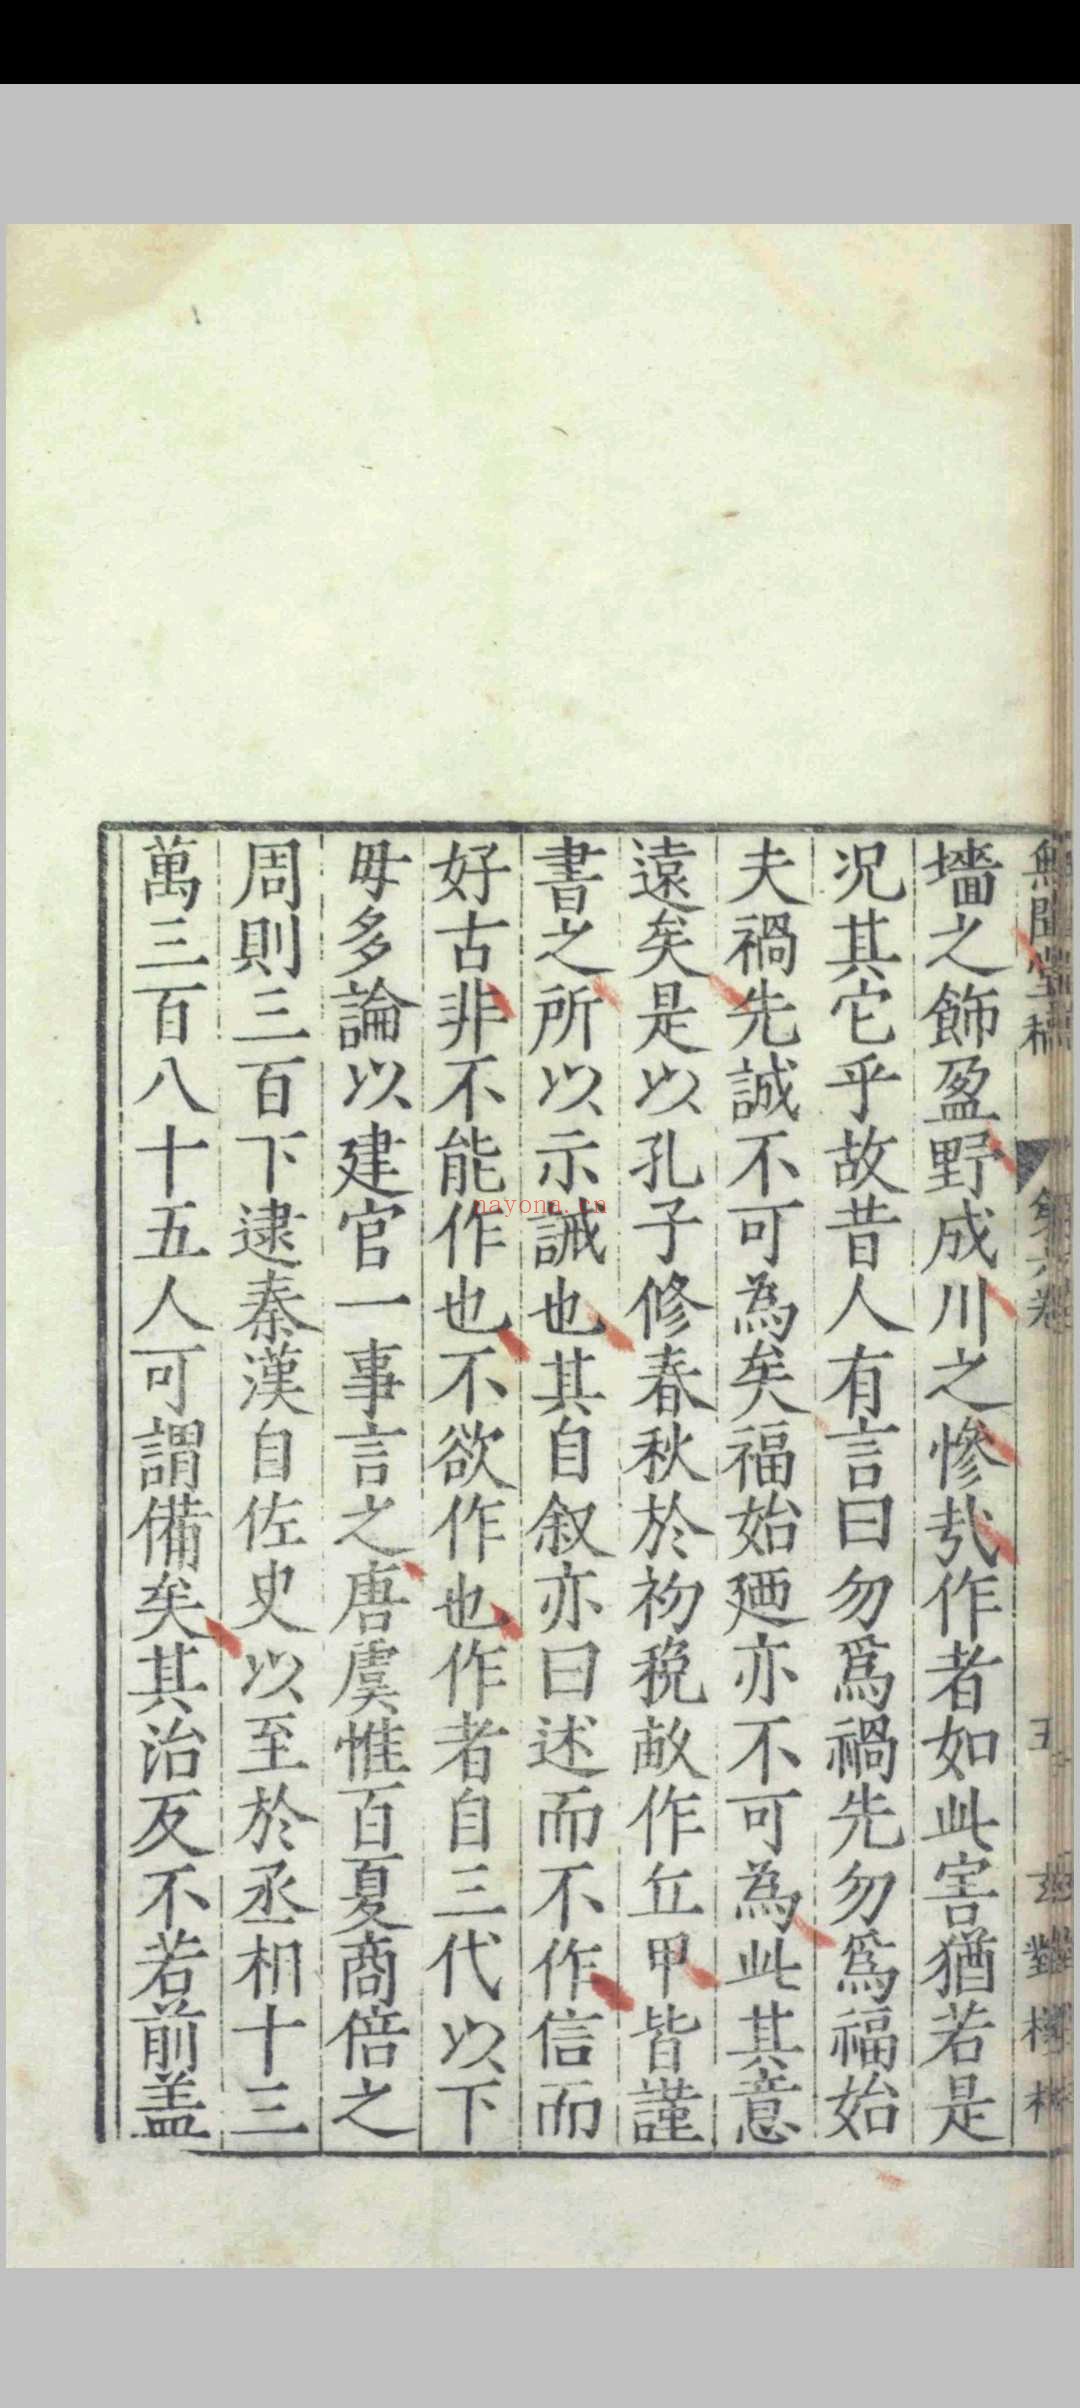 墻之飾盈野成川之慘㦲作者如此害猶若是
况其它乎故昔人有言曰勿爲禍先勿爲福始
夫禍先誠不可為矣福始廼亦不可為此其意
遠矣是以孔子修春秋於初稅畝作丘甲皆謹
書之所以示誡也其自叙亦曰述而不作信而
好古非不能作也不欲作也作者自三代以下
毋多論以建官一事言之唐虞惟百夏商倍之
周則三百下逮秦漢自佐史以至於丞相十三
萬三百八十五人可謂備矣其治反不若前盖
nayona.cn